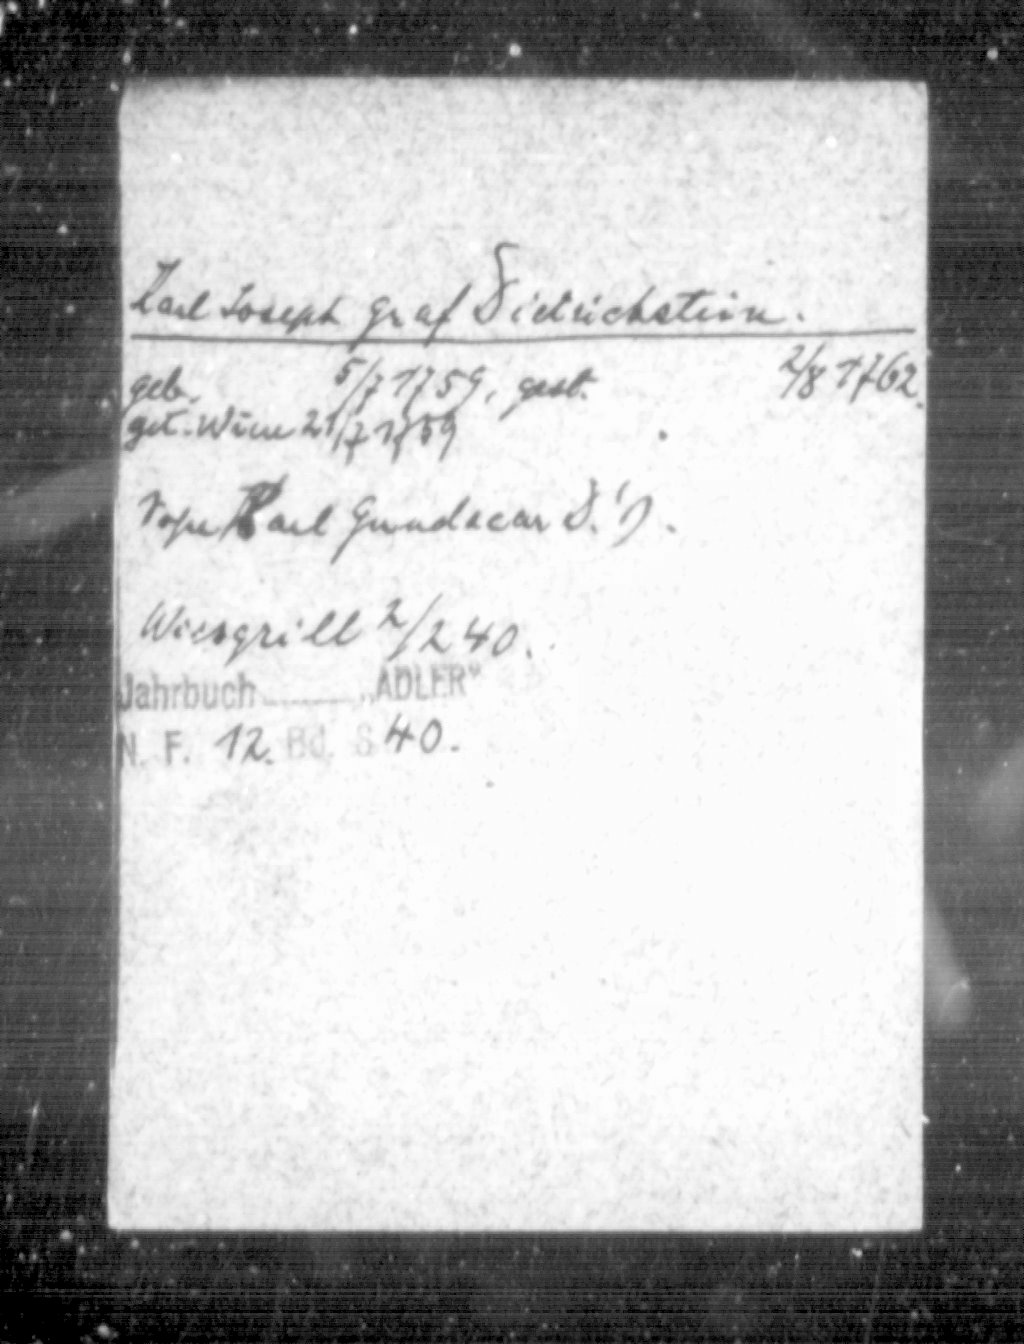 Karl Joseph Graf Dietrichstein.
geb. 5/7 1759, gest. 2/8 1762.
get. Wien 21/7 1759
Karl Gundacar D.
Wissgrill 2/240.
Jahrbuch ........ „ADLER"
N. F. 12. Bd. S 40.